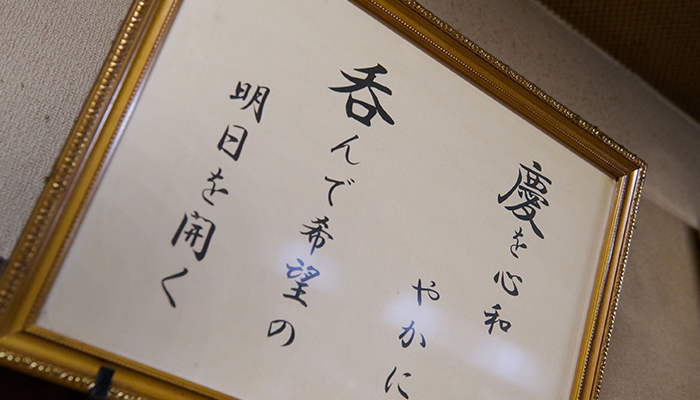 慶を心和
やかに
呑んで希望の
明日を開く